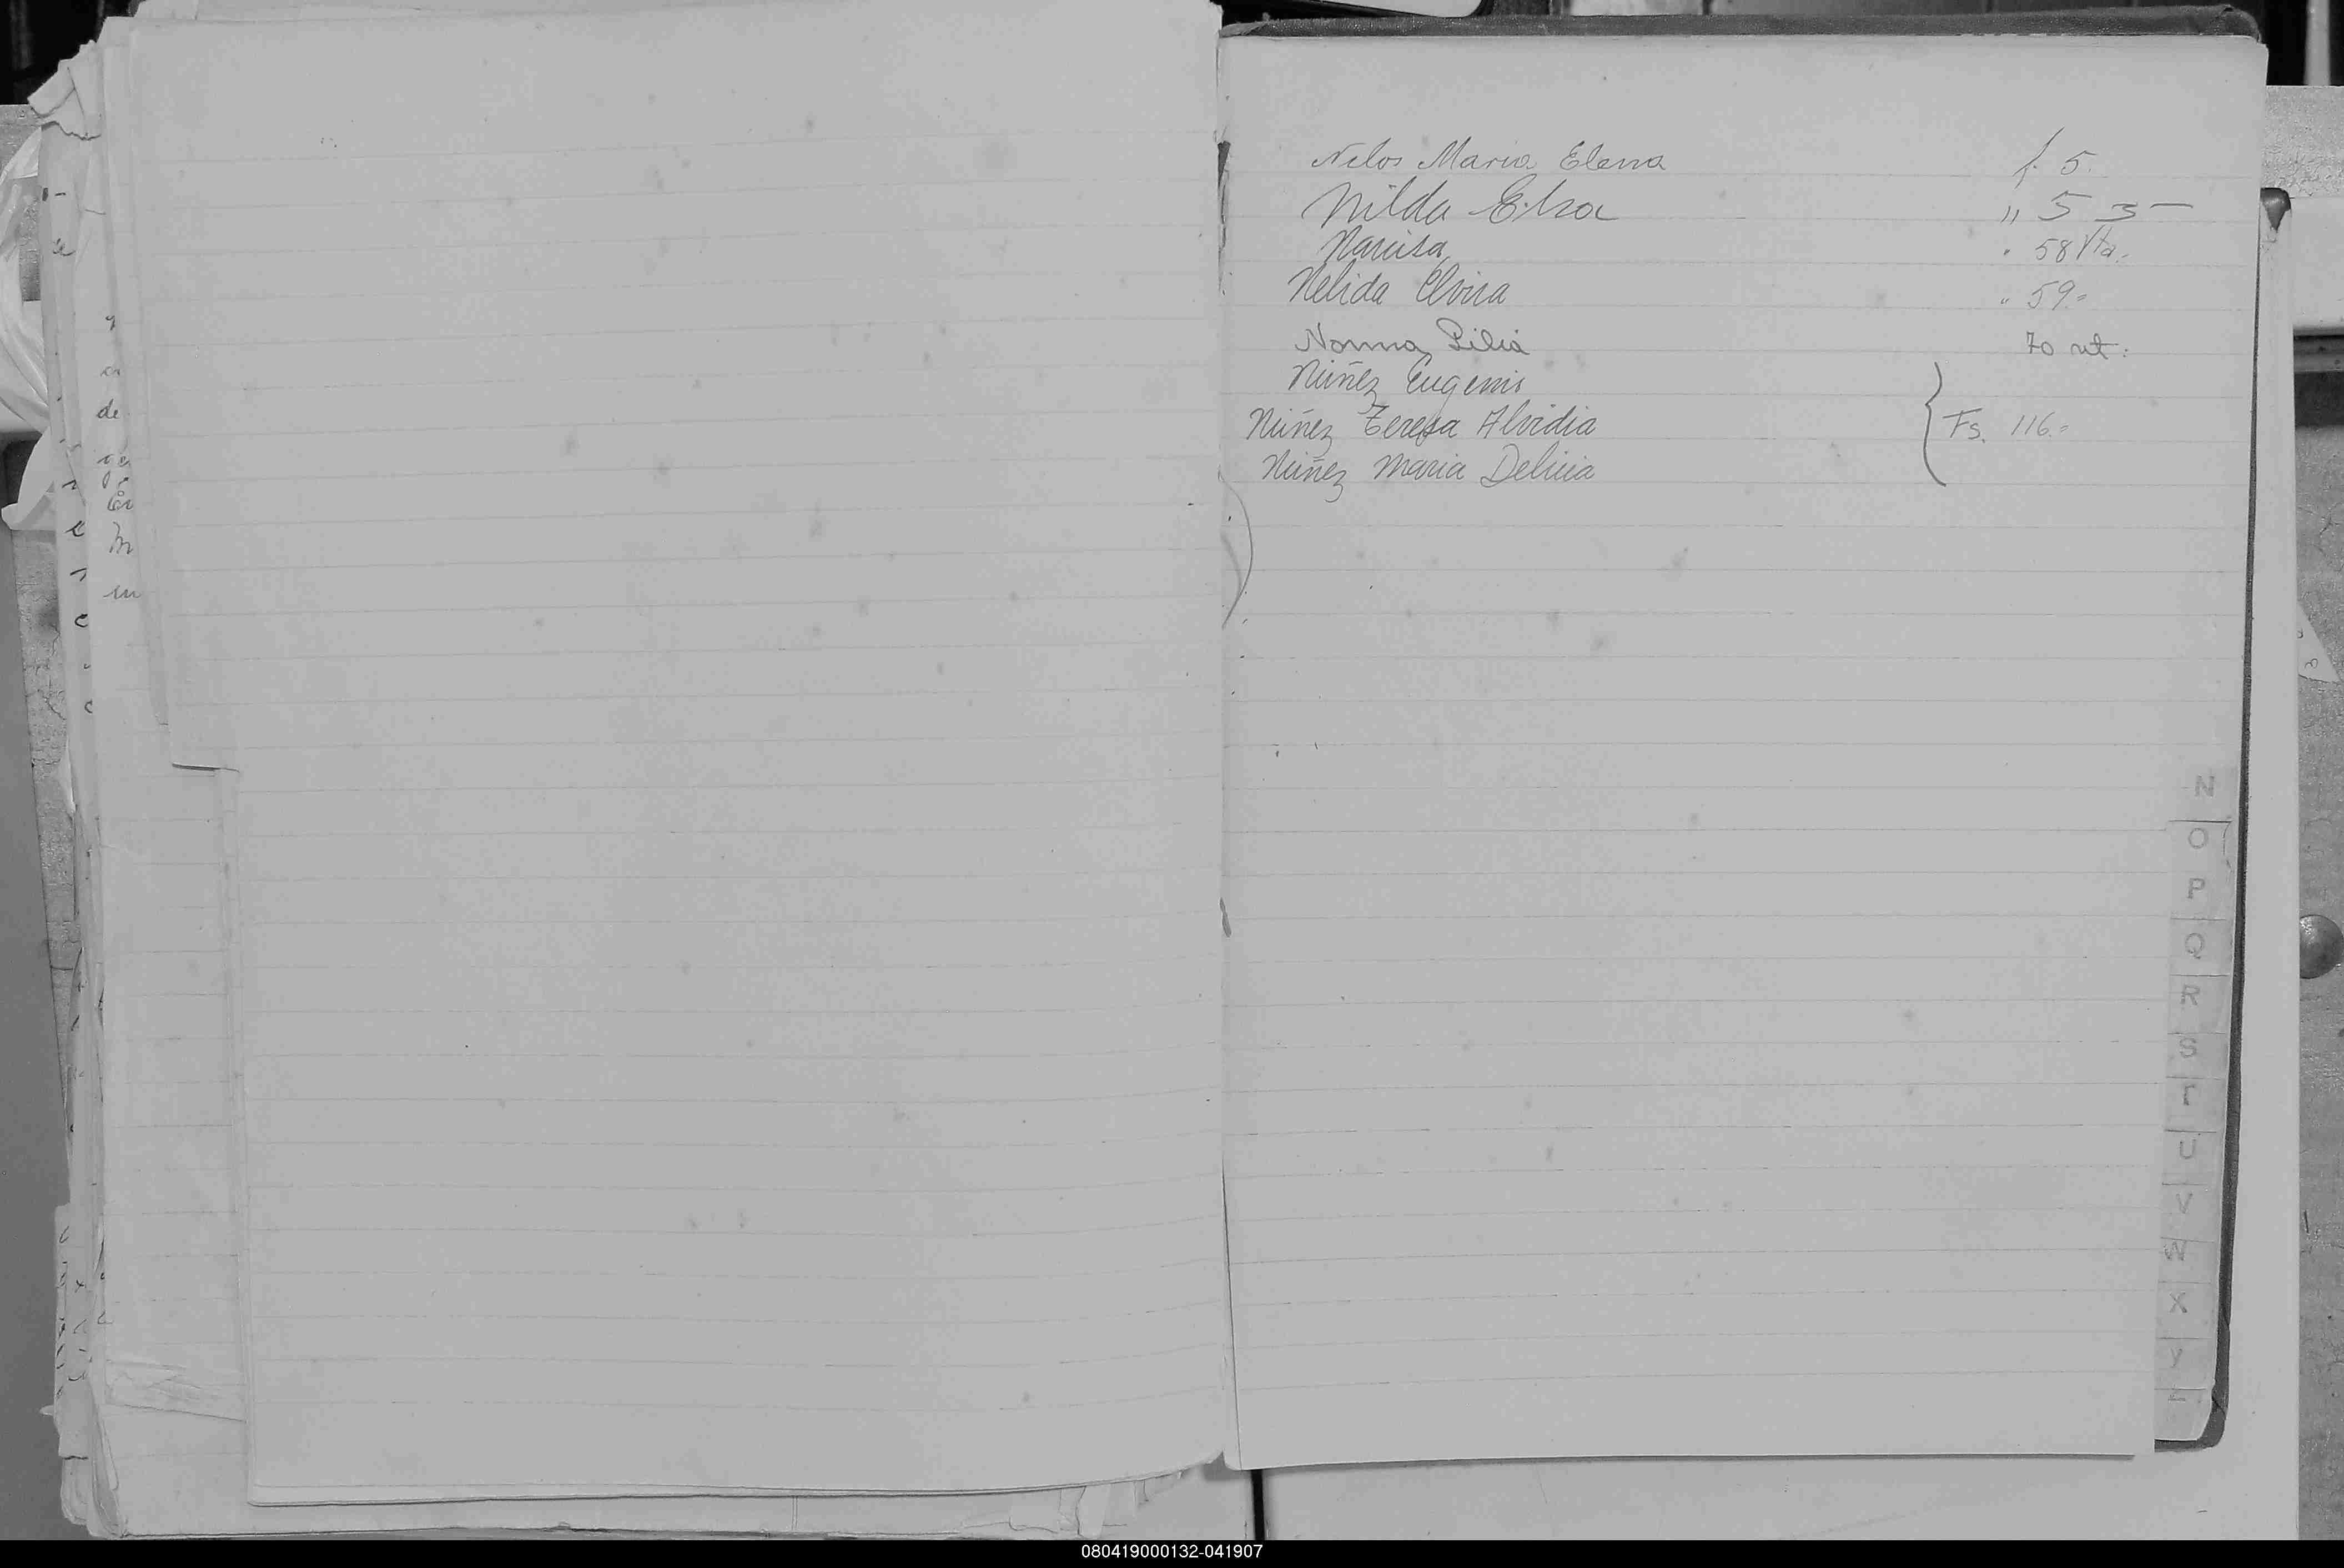 Nelos Maria Elena f. 5.
Nilda Elsa " 53-
Narcisa " 58 Vta.-
Nelida Elvira " 59.-
Norma Lilia 70 vt.
Nuñez Eugenio
Nuñez Teresa Alvidia Fs. 116.-
Nuñez Maria Delicia
N
O
P
Q
R
S
T
U
V
W
X
Y
Z
080419000132-041907